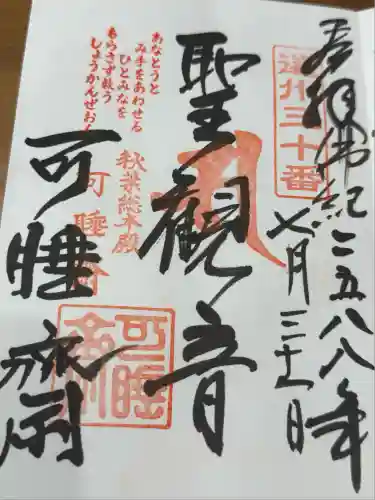 遠州三十番
奉拝 佛紀二五八八年
七月三十一日
聖觀音
あなとうと
み手をあわせる
ひとみなを
もらさず救う
しょうかんぜおん
秋葉総本殿
可睡斎
可睡齋